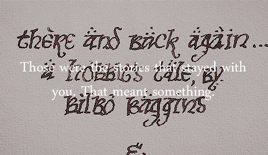 there and back again...
Those were the stories that stayed with
a hobbit's tale, by
you. That meant something.
bilbo baggins
&